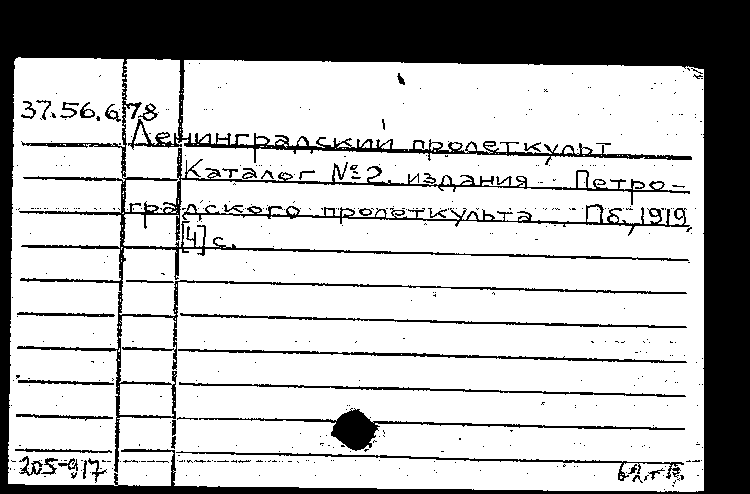 37.56.6.78
Ленинградский пролеткульт
Каталог №2. издания Петро-
градского пролеткульта. Пб., 1919,
[4] с.
205-917